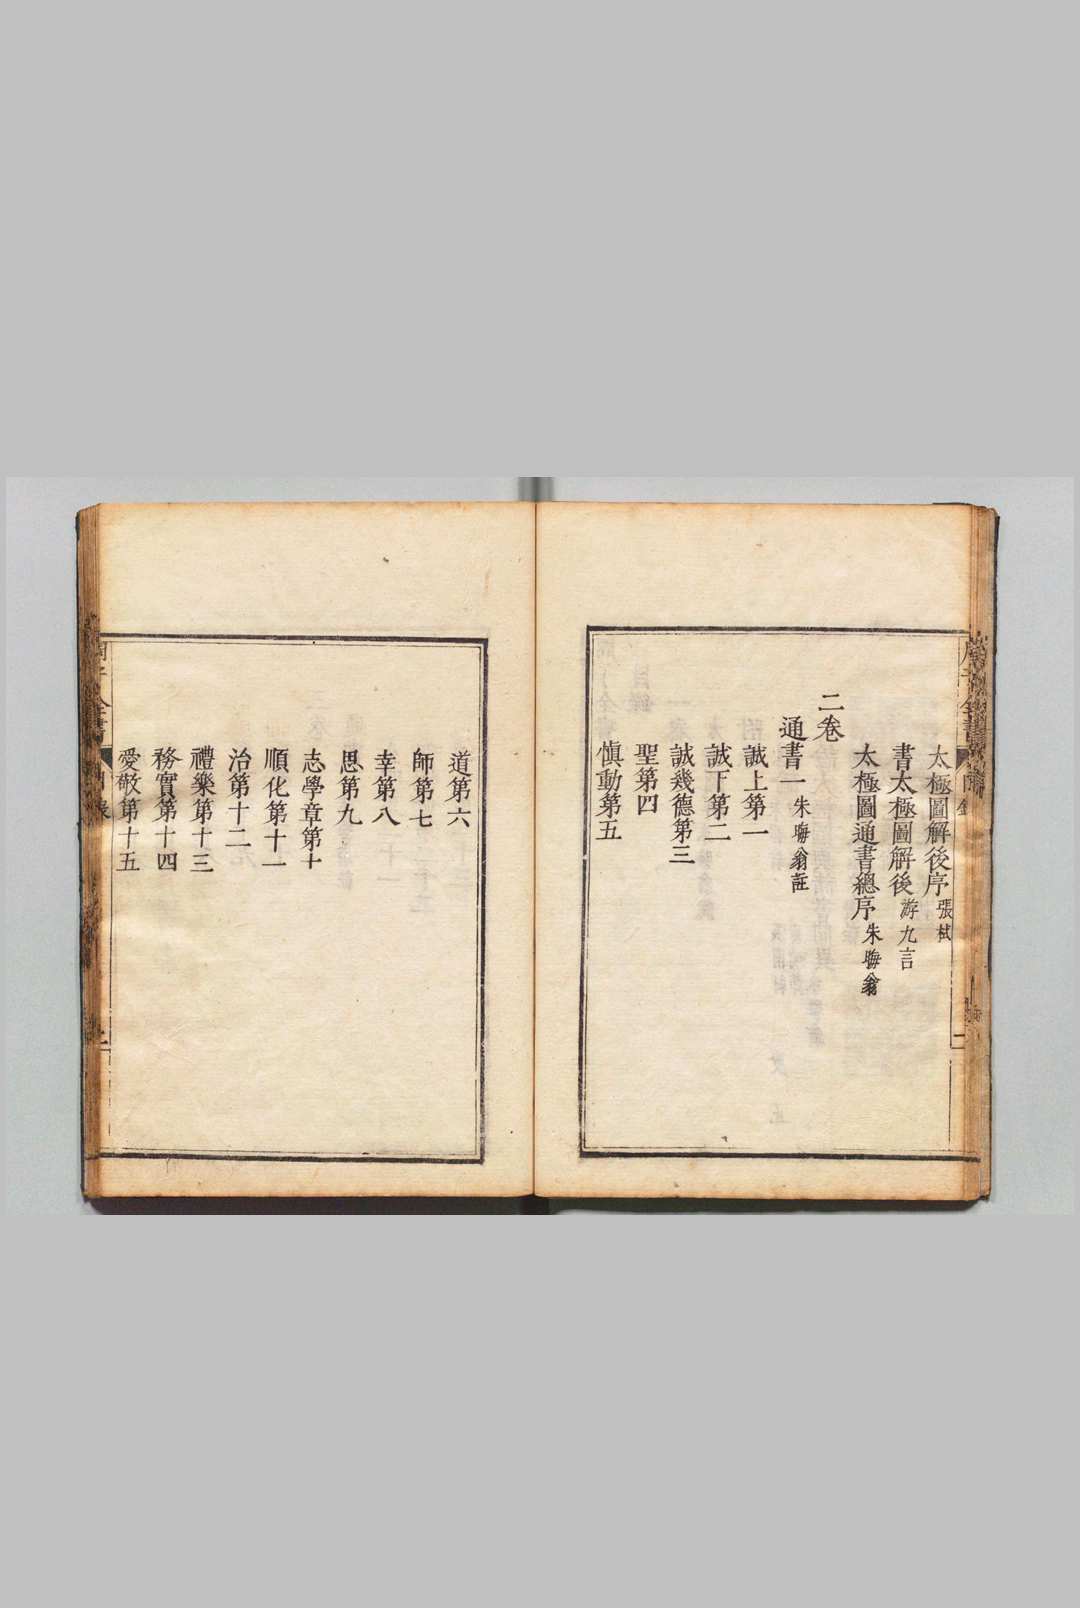 太極圖解後序 張栻
書太極圖解後 游九言
太極圖通書總序 朱晦翁
二卷
通書一 朱晦翁註
誠上第一
誠下第二
誠幾德第三
聖第四
慎動第五
道第六
師第七
幸第八
思第九
志學章第十
順化第十一
治第十二
禮樂第十三
務實第十四
愛敬第十五